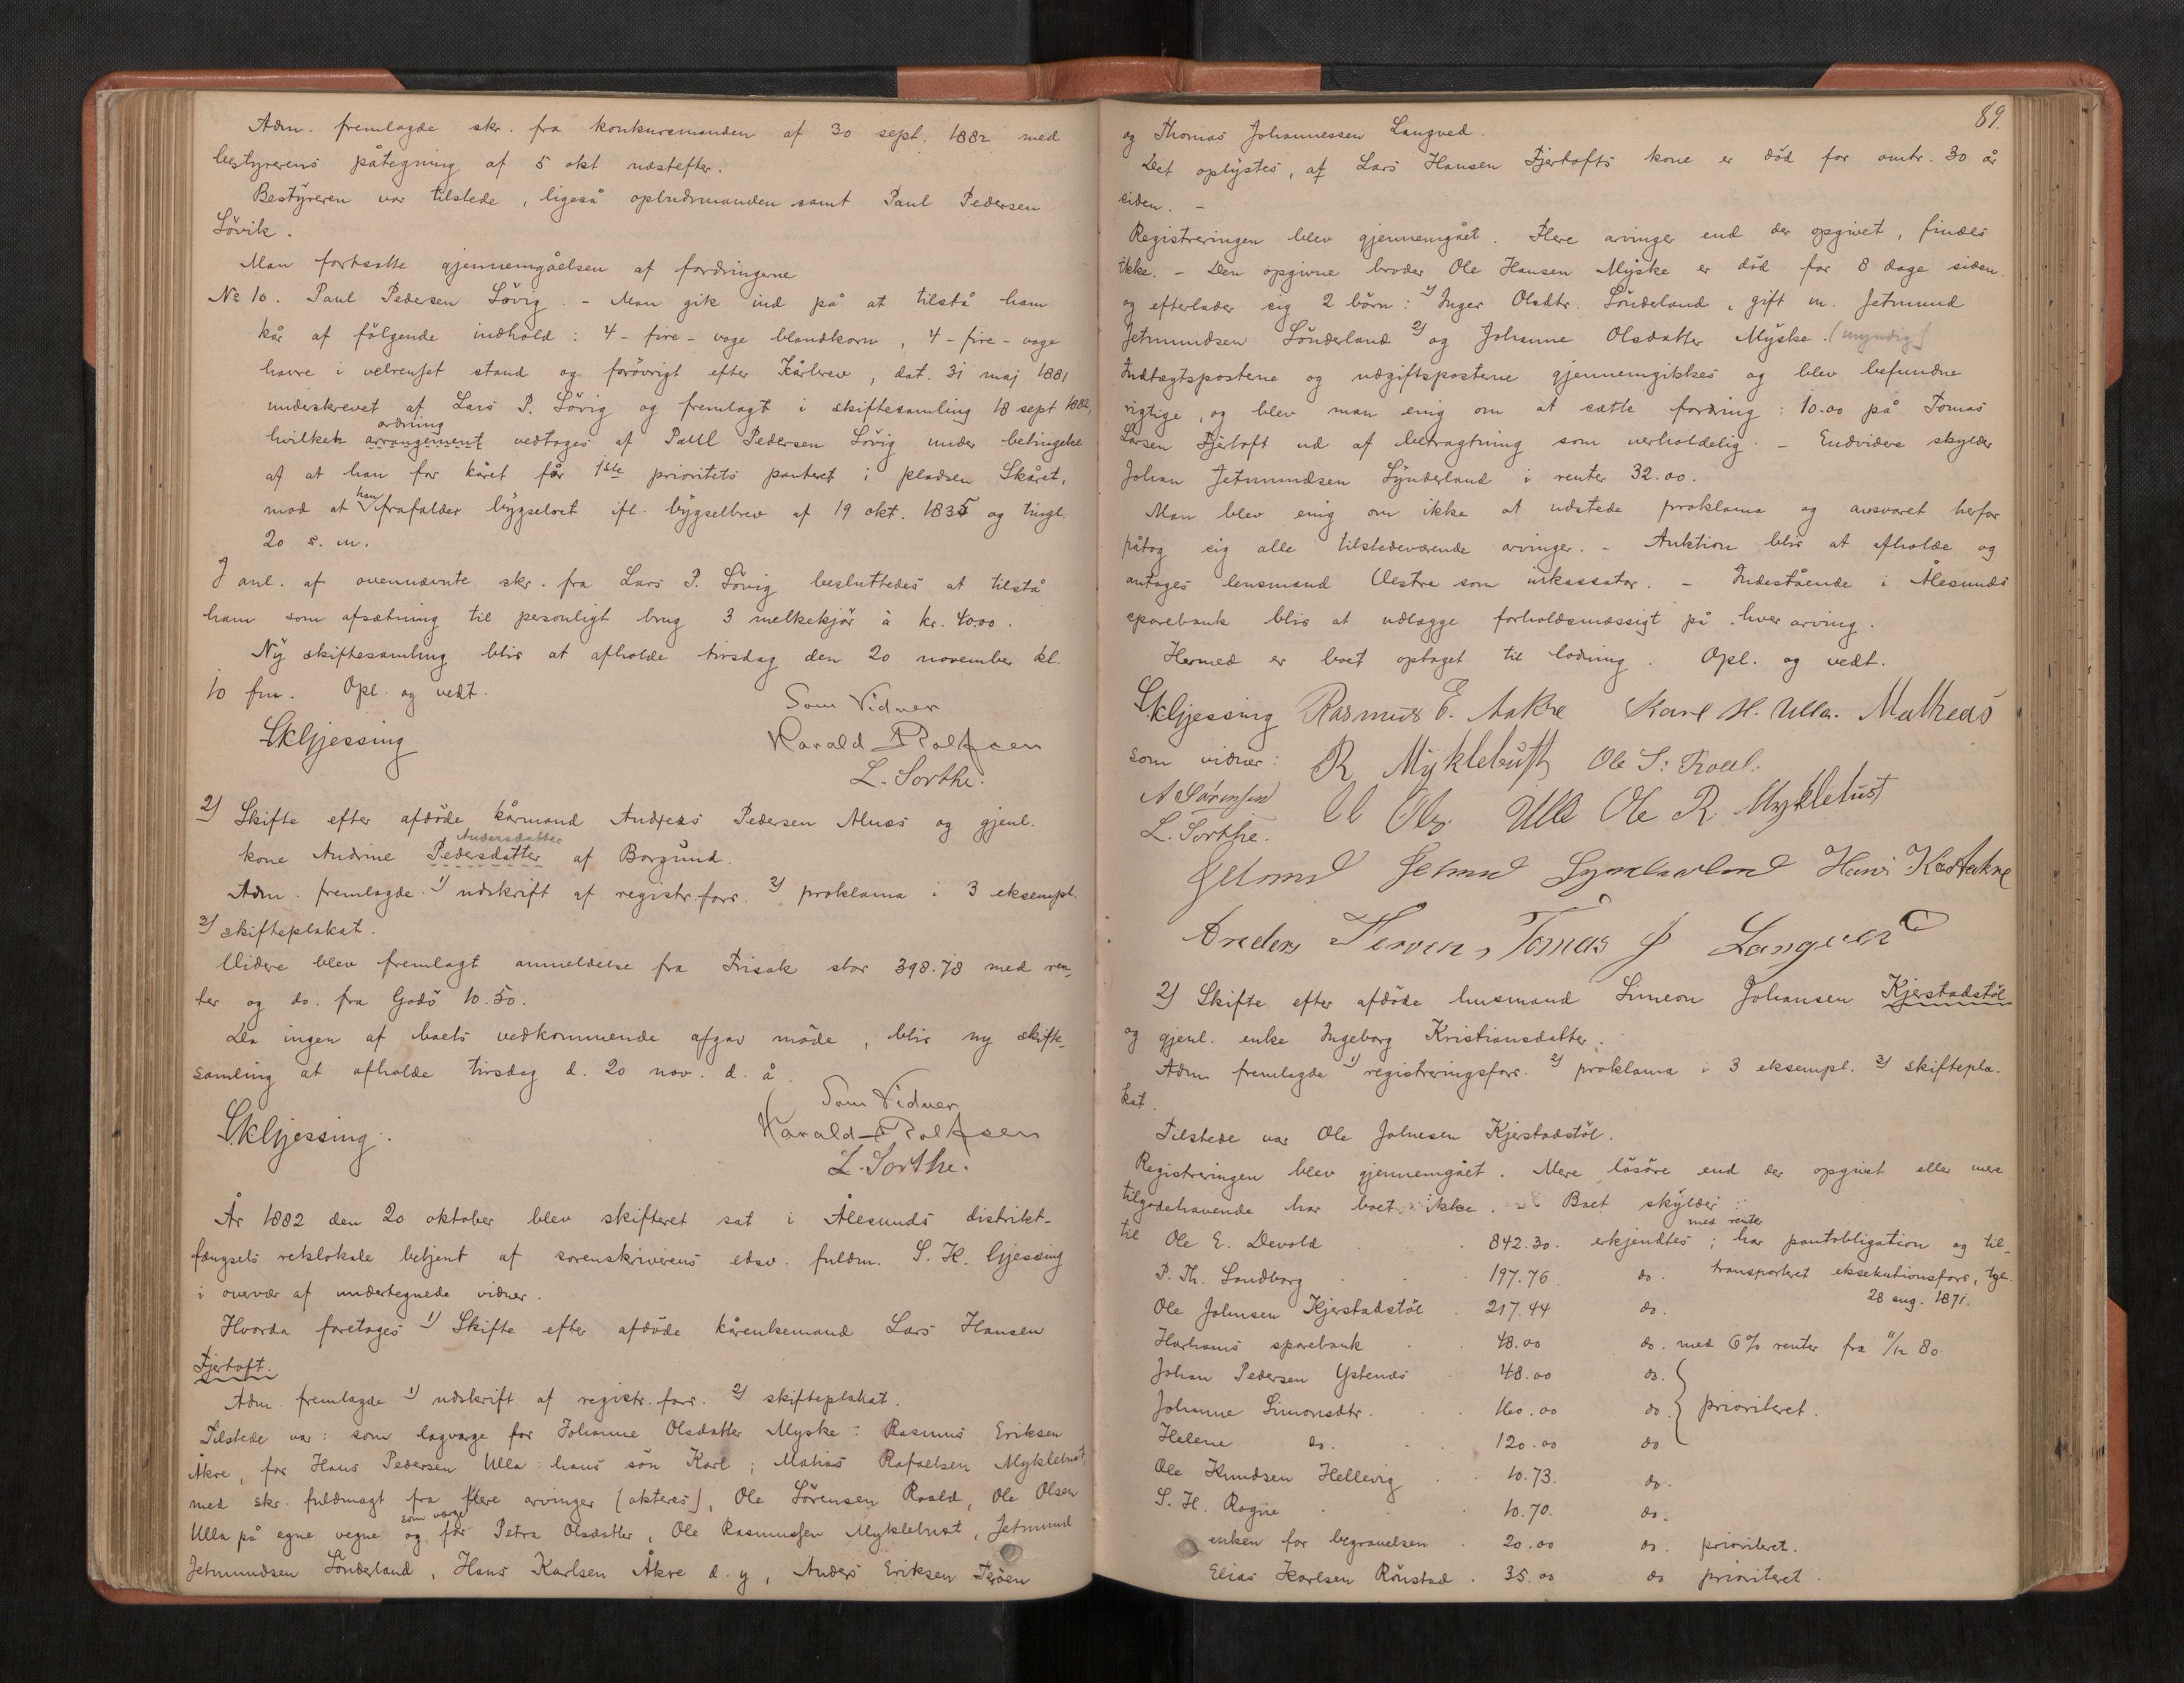 Adm. fremlagde skr. fra konkursmanden af 30 sept. 1882 med
bestyrerens påtegning af 5 okt næstefter.
Bestyreren var tilstede, ligeså opbudsmanden samt Paul Pedersen
Lövik.
Man fortsatte gjennemgåelsen af fordringerne
No 10. Paul Pedersen Lövig. - Man gik ind på at tilstå ham
kår af fölgende indhold: 4 - fire - voge blandkorn, 4 - fire - voge
havre i velrenset stand og forövrigt efter Kårbrev, dat. 31 maj 1881
underskrevet af Lars P. Lövig og fremlagt i skiftesamling 18 sept 1882,
ordning
hvilken arrangement vedtages af Paul Pedersen Lövig under betingelse
af at han for kåret får 1ste prioritets panteret i pladsen Skåret,
mod at han frafalder bygselret ifl. bygselbrev af 19 okt. 1835 og tingl.
20 s. m.
I anl. af ovennævnte skr. fra Lars P. Lövig besluttedes at tilstå
ham som afsætning til personligt brug 3 melkekjör à kr. 40.00.
Ny skiftesamling blir at afholde tirsdag den 20 november kl.
10 fm. Opl. og vedt.
Som Vidner
SKGjessing
Harald Rolfsen
L. Sorthe.
2) Skifte efter afdöde kårmand Andreas Pedersen Alnæs og gjenl.
Andersdatter
kone Andrine Pedersdatter af Borgund.
Adm. fremlagde 1) udskrift af registr. forr. 2) proklama i 3 eksempl.
3) skifteplakat.
Videre blev fremlagt anmeldelse fra Frisak stor 398.78 med ren-
ter og do. fra Godö 10.50.
Da ingen af boets vedkommende afgav möde, blir ny skifte-
samling at afholde tirsdag d. 20 nov. d. å.
Som Vidner
SKGjessing.
Harald Rolfsen
L. Sorthe.
År 1882 den 20 oktober blev skifteret sat i Ålesunds distrikt-
fængsels retslokale betjent af sorenskriverens edsv. fuldm. S. K. Gjessing
i overvær af undertegnede vidner.
Hvorda foretages 1) Skifte efter afdöde kårenkemand Lars Hansen
Fjertoft.
Adm. fremlagde 1) udskrift af registr. forr. 2) skifteplakat.
Tilstede var: som lagvarge for Johanne Olsdatter Myske: Rasmus Eriksen
Åkre, for Hans Pedersen Ulla hans sön Karl; Mathias Rafaelsen Myklebust,
med skr. fuldmagt fra flere arvinger (akteres), Ole Sörensen Roald, Ole Olsen
som værge
Ulla på egne vegne og for Petra Olsdatter, Ole Rasmussen Myklebust, Jetmund
Jetmundsen Lönderland, Hans Karlsen Åkre d. y, Anders Eriksen Teröen
89.
og Thomas Johannessen Langved.
Det oplystes, at Lars Hansen Fjertofts kone er död for omtr. 30 år
siden. -
Registreringen blev gjennemgået. Flere arvinger end der opgivet, findes
ikke. - Den opgivne broder Ole Hansen Myske er död for 8 dage siden.
og efterlader sig 2 börn: 1) Inger Olsdtr. Lönderland, gift m. Jetmund
Jetmundsen Lönderland 2) og Johanne Olsdatter Myske. (myndig)
Indtægtsposterne og udgiftsposterne gjennemgikkes og blev befundne
rigtige, og blev man enig om at sætte fordring: 10.00 på Tomas
Larsen Fjertoft ud af betragtning som uerholdelig. - Endvidere skylder
Johan Jetmundsen Lynderland i renter 32.00.
Man blev enig om ikke at udstede proklama og ansvaret herfor
påtog sig alle tilstedeværende arvinger. - Auktion blir at afholde og
antages lensmand Vestre som inkassator. - Indestående i Ålesunds
sparebank blir at udlægge forholdsmæssigt på hver arving.
Hermed er boet optaget til lodning. Opl. og vedt.
SKGjessing Rasmus E. Aakre Karl H. Ulla. Matheas
som vidner: R Myklebust Ole S. Roald.
A Sörensen
Ol Ols Ulla Ole R. Myklebust
L. Sorthe.
Jetmund Jetmund Lynderland Hans K Aakre
Anders Teroen, Tomas J Langved
2) Skifte efter afdöde husmand Simeon Johansen Kjerstadstöl
og gjenl. enke Ingeborg Kristiansdatter.
Adm fremlagde 1) registreringsforr. 2) proklama i 3 eksempl. 3) skiftepla-
kat.
Tilstede var Ole Johnsen Kjerstadstöl.
Registreringen blev gjennemgået. Mere lösöre end der opgivet eller mere
tilgodehavende har boet ikke. Boet skylder
med renter
til Ole E. Devold 842.30. erkjendtes; har pantobligation og til-
P. Th. Sandborg 197.76 do. transporteret eksekutionsforr., tgl.
28 aug. 1871.
Ole Johnsen Kjerstadstöl 217.44 do.
Harhams sparebank 48.00 do. med 6% renter fra 1/12 80
Johan Pedersen Ystenæs 48.00 do.
Johanne Simonsdtr. 160.00 do. prioriteret.
Helene do. 120.00 do
Ole Knudsen Hellevig 10.73. do.
S. H. Rogne 10.70. do.
enken for begravelsen 20.00 do. prioriteret.
Elias Karlsen Rönstad. 35.00 do prioriteret.